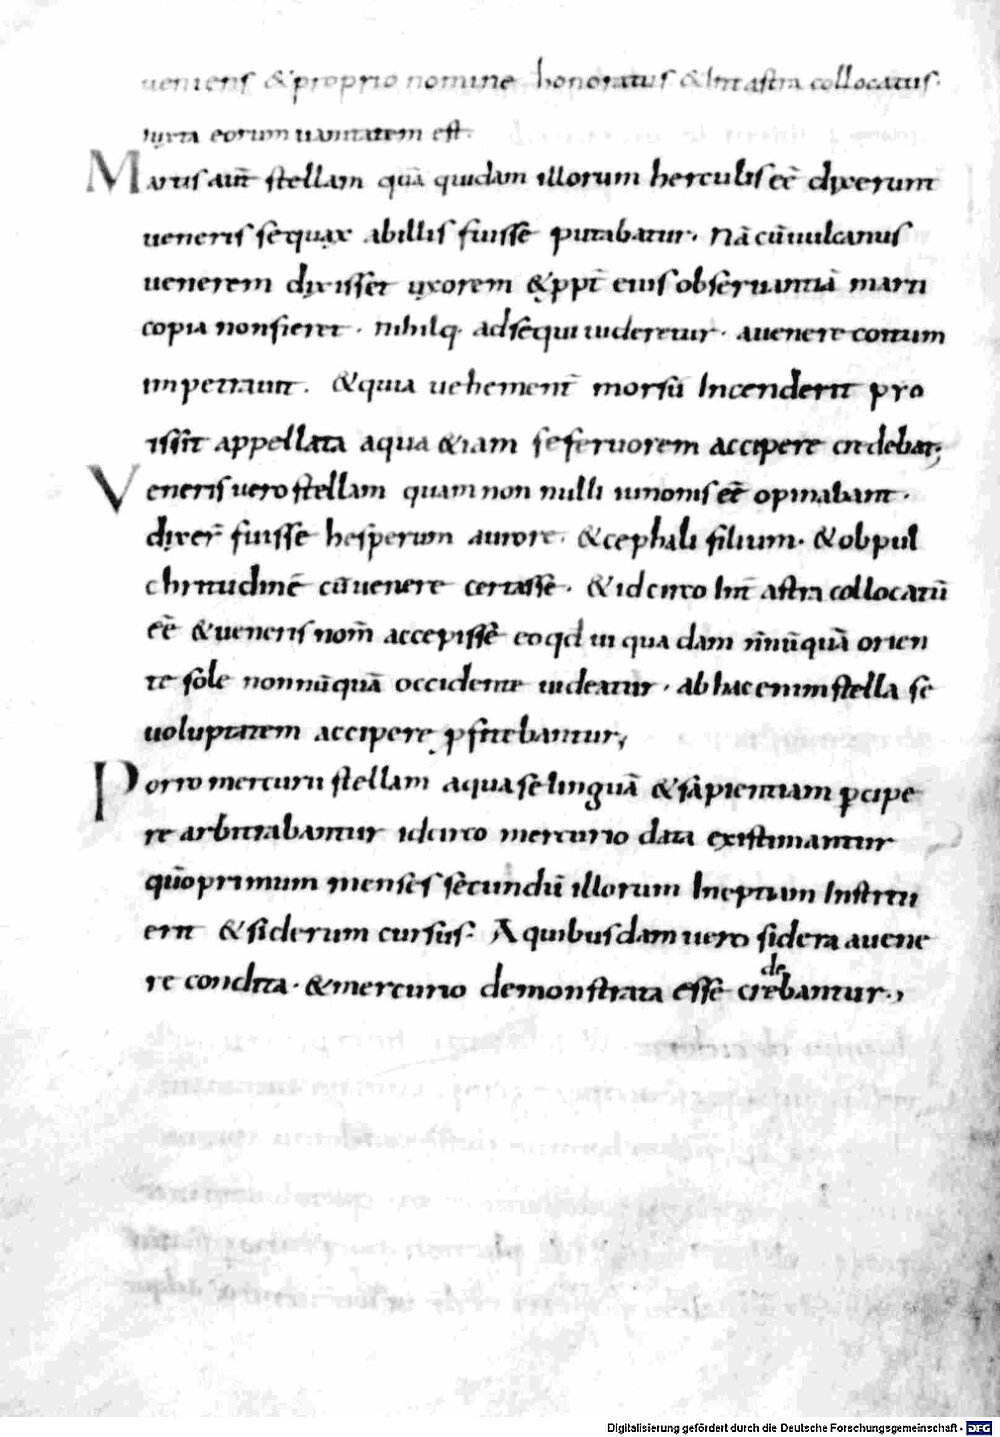 ueniens & proprio nomine honoratus & Int astra collocatus·
iuxta eorum uanitatem est·
Martis aut̄ stellam quā quidam illorum herculis eē dixerunt
ueneris sequax ab illis fuisse putabatur· Nā cū uulcanus
uenerem dixisset uxorem & ꝓpt̄ eius obseruantiā marti
copia non fieret· nihilq· adsequi uideretur· a uenere coitum
impetrauit. & quia uehement̄ morsū Incenderit pyro
issīt appellata a qua &iam se feruorem accipere credebat;
Veneris uero stellam quam non nulli iunonis eē opinabant·
dixer̄ fuisse hesperum aurore· & cephali filium· & ob pul
chritudinē cū uenere certasse· & idcirco Int̄ astra collocatū
eē & ueneris nom̄ accepisse eo qd in qua dam nn̄ūquā orien
te sole nonnūquā occidente uideatur· ab hac enim stella se
uoluptatem accipere ꝓfitebantur;
Porro mercurii stellam a qua se linguā & sapientiam ꝑcipe
re arbitrabantur idcirco mercurio data existimantur
quō primum menses secundū illorum Ineptum Institu
erit & siderum cursus· A quibusdam uero sidera a uene
re condita· & mercurio demonstrata esse crebantur·,
de